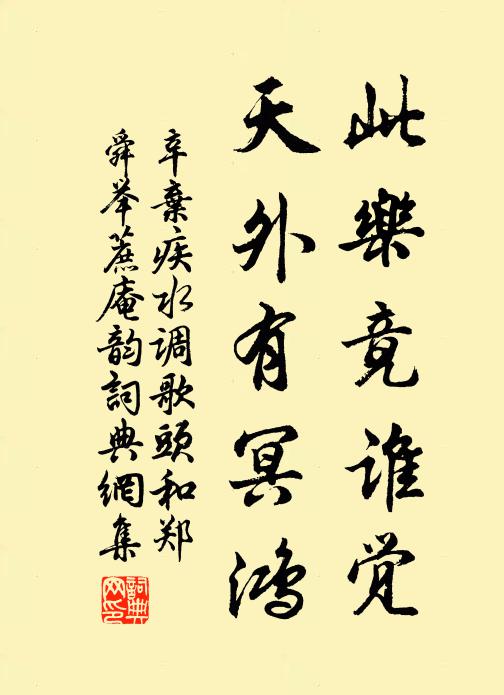 此樂竟谁覚
天外有冥鸿
辛棄疾水调歌頭和郑
舜举蔗庵韵詞典網集
詞典
网印